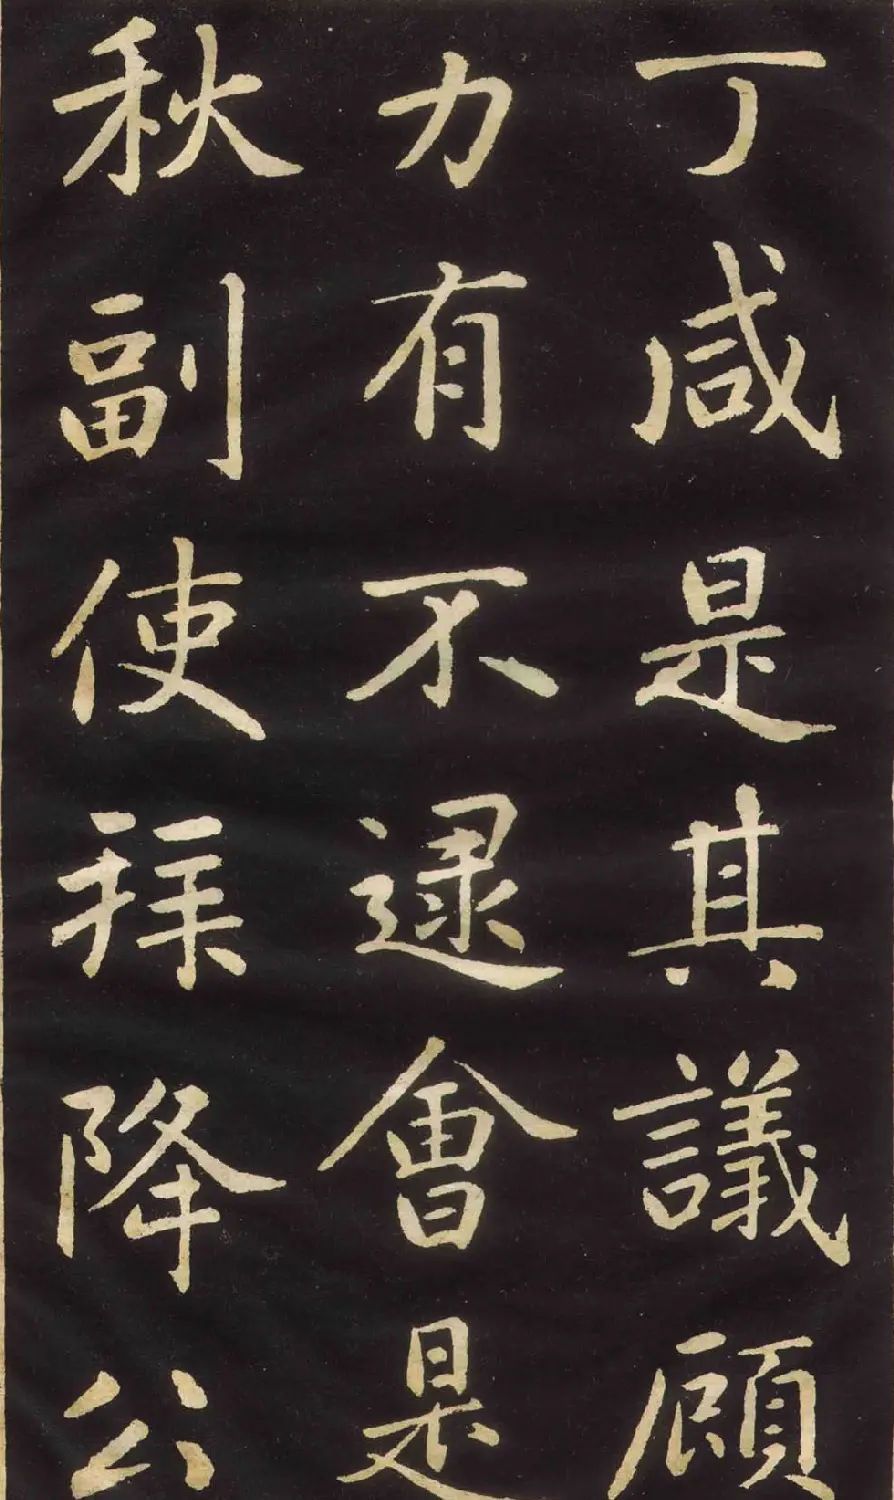 丁咸是其議顧
力有不逮會是
秋副使拜降公